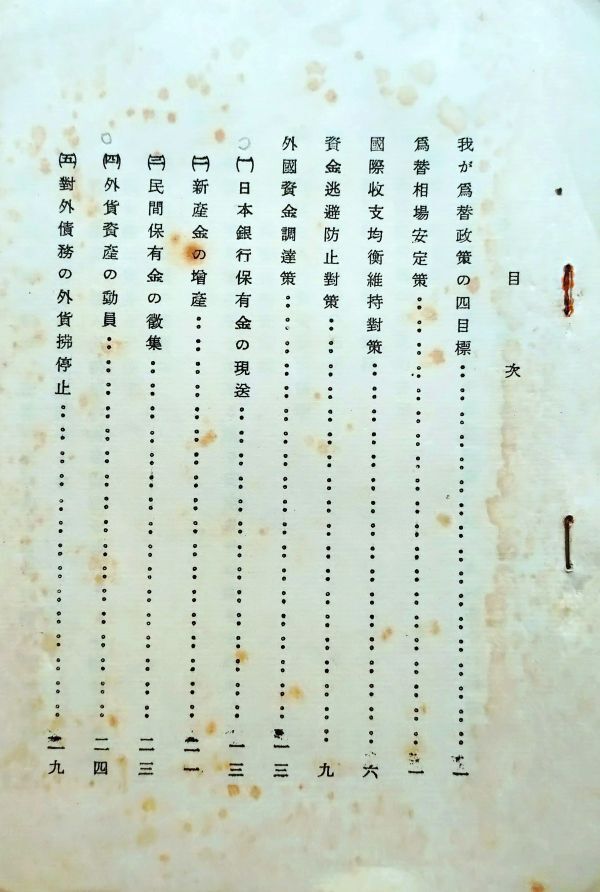 目次
我が爲替政策の四目標 一
爲替相場安定策 一
國際收支均衡維持對策 六
資金逃避防止對策 九
外國資金調達策 一三
㈠日本銀行保有金の現送 一三
㈡新産金の增産 二一
㈢民間保有金の徵集 二三
㈣外貨資産の動員 二四
㈤對外債務の外貨拂停止 二九